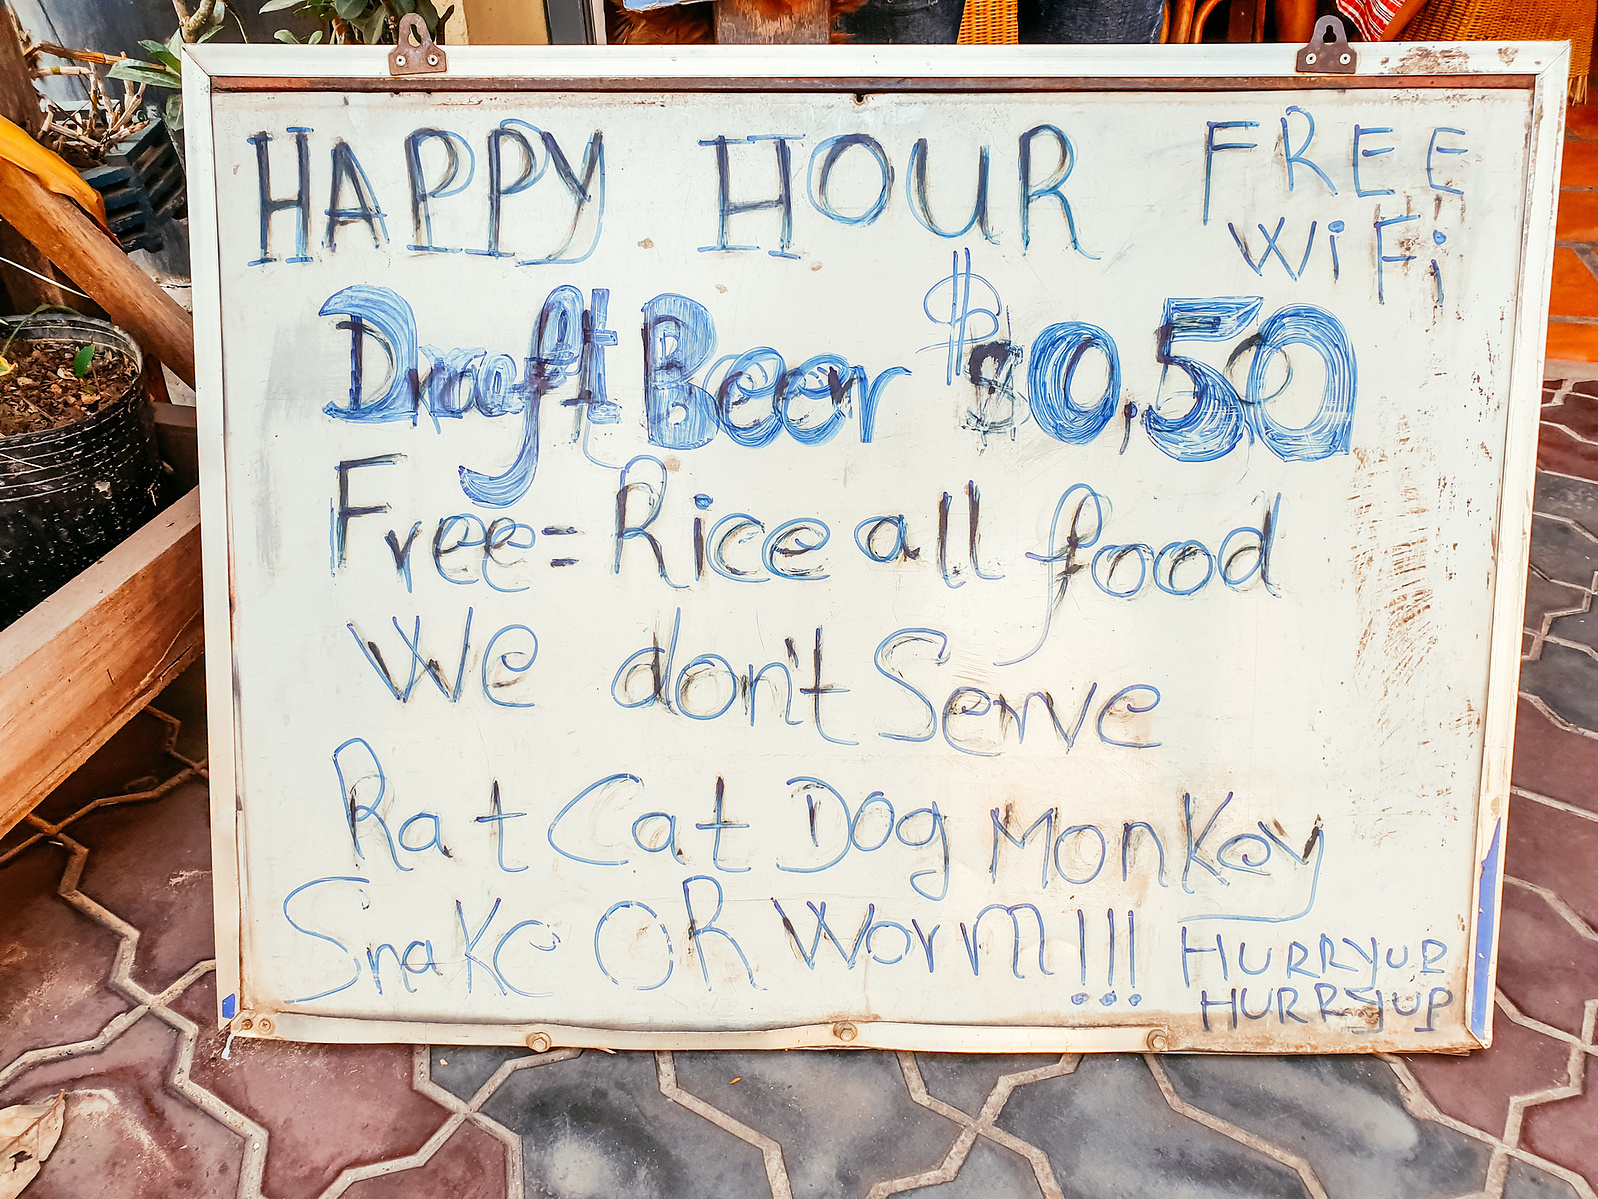 HAPPY HOUR
FREE
WiFi
Draft Beer $ $0,50
Free = Rice all food
We don't Serve
Rat Cat Dog Monkey
Snake OR Worm!!!
HURRY UP
HURRY UP